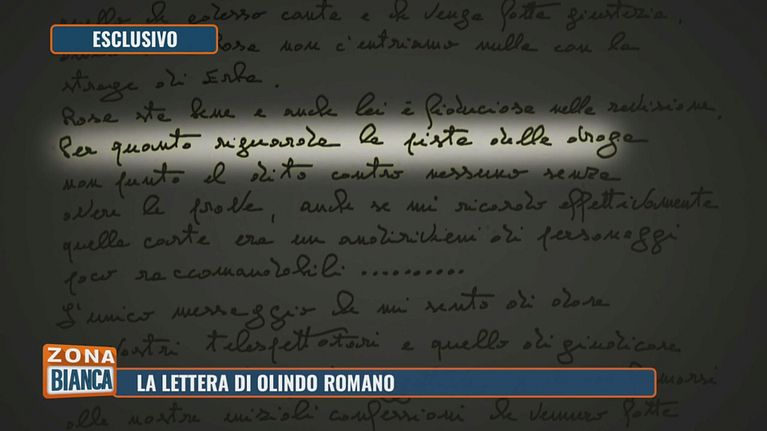 quello che adesso conta e che venga fatta giustizia.
ESCLUSIVO
Rosa non c'entriamo nulla con la
strage di Erba.
Rosa sta bene e anche lei è fiduciosa nella revisione.
Per quanto riguarda la pista della droga
non punto il dito contro nessuno senza
avere le prove, anche se mi ricordo effettivamente
quella corte era un andirivieni di personaggi
poco raccomandabili ..........
L'unico messaggio che mi sento di dare
vostri telespettatori e quello di giudicare
ZONA
BIANCA
LA LETTERA DI OLINDO ROMANO
alle nostre iniziali confessioni che vennero fatte